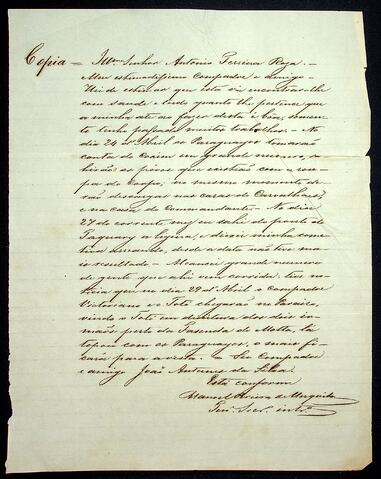 Copia = Illmo Senhor Antonio Ferreira Roza. –
Meu estimadissimo Compadre e amigo –
Hei de estimar que esta vá encontrar-lhe
com saude e tudo quanto lhe pertence que
a minha até ao fazer desta é boa,
tenho passado muitos trabalhos. – No
dia 24 de Abril os Paraguayos tomarão
conta do Coxim em grande numero,
os povos que existião com a
do Corpo; no mesmo momento
descançar nas casas do Carvalhaes
e na casa do Commandante. No dia
27 do corrente, me
Taquary e minha
desde a data não tive ma
is resultado. – Alcancei grande numero
de gente que ahi vem corrida, tive no
ticia que no dia 29 de Abril o Compadre
Victoriano e o Tito chegarão no
vindo o Tito em dos dois ir
mãos perto da Fasenda do Motta, la
topou com os Paraguayos, o mais fi
cará para a vista. a Seu Compadre
e amigo João Antunes da Silva.
Está conforme
Manoel de Mesquita
Ten. Secr. intº.